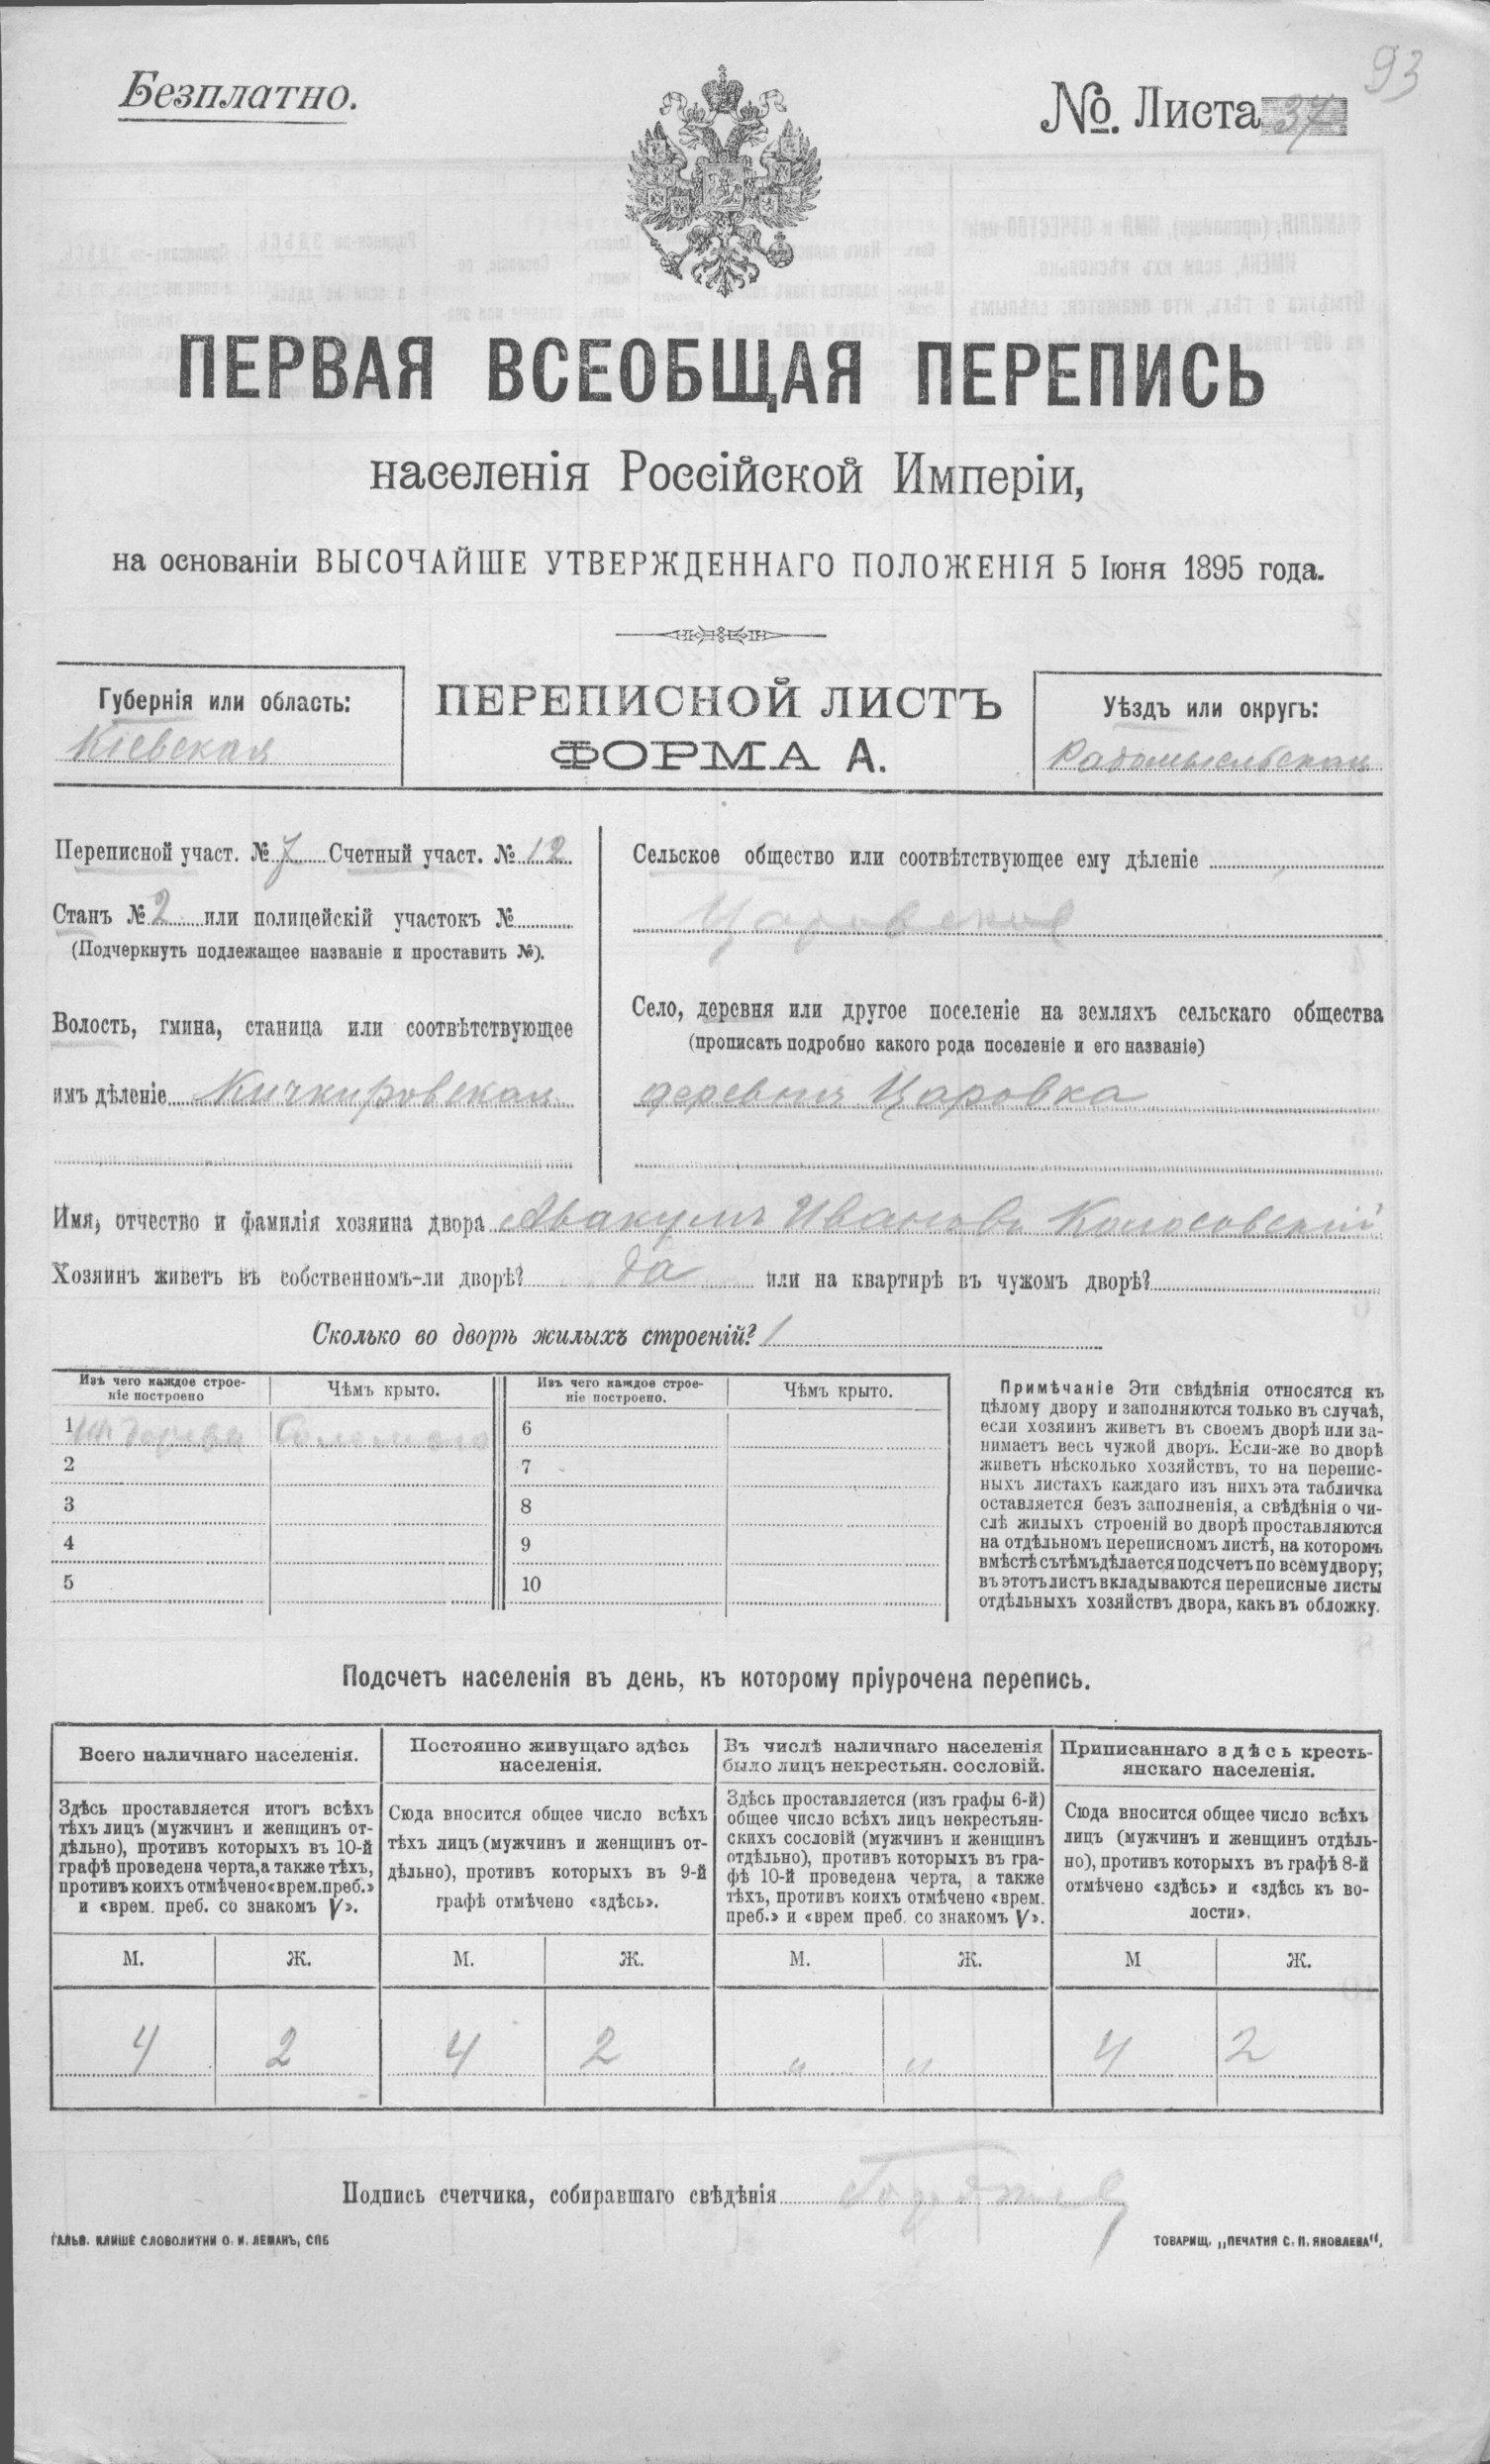 93
Безплатно.
№. Листа 37
ПЕРВАЯ ВСЕОБЩАЯ ПЕРЕПИСЬ
населенія Россійской Имперіи,
на основаніи ВЫСОЧАЙШЕ УТВЕРЖДЕННАГО ПОЛОЖЕНІЯ 5 Іюня 1895 года.
Губернія или область:
Кіевская
ПЕРЕПИСНОЙ ЛИСТЪ
ФОРМА А.
Уѣздъ или округъ:
Радомысльскій
Переписной участ. № 7 Счетный участ. № 12
Станъ № 2 или полицейскій участокъ №
(Подчеркнуть подлежащее названіе и проставить №).
Волость, гмина, станица или соотвѣтствующее
имъ дѣленіе Кичкировская
Сельское общество или соотвѣтствующее ему дѣленіе
Царовское
Село, деревня или другое поселеніе на земляхъ сельскаго общества
(прописать подробно какого рода поселеніе и его названіе)
деревня Царовка
Имя, отчество и фамилія хозяина двора Авакумъ Ивановъ Колосовскій
Хозяинъ живетъ въ собственномъ-ли дворѣ? да или на квартирѣ въ чужомъ дворѣ?
Сколько во дворѣ жилыхъ строеній? 1
Изъ чего каждое строе-
ніе построено
Чѣмъ крыто.
Изъ чего каждое строе-
ніе построено.
Чѣмъ крыто.
1 Изъ дерева Соломою
2
3
4
5
6
7
8
9
10
Примѣчаніе Эти свѣдѣнія относятся къ
цѣлому двору и заполняются только въ случаѣ,
если хозяинъ живетъ въ своемъ дворѣ или за-
нимаетъ весь чужой дворъ. Если-же во дворѣ
живетъ нѣсколько хозяйствъ, то на перепис-
ныхъ листахъ каждаго изъ нихъ эта табличка
оставляется безъ заполненія, а свѣдѣнія о чи-
слѣ жилыхъ строеній во дворѣ проставляются
на отдѣльномъ переписномъ листѣ, на которомъ
вмѣстѣ съ тѣмъ дѣлается подсчетъ по всему двору;
въ этотъ листъ вкладываются переписные листы
отдѣльныхъ хозяйствъ двора, какъ въ обложку.
Подсчетъ населенія въ день, къ которому пріурочена перепись.
Всего наличнаго населенія.
Здѣсь проставляется итогъ всѣхъ
тѣхъ лицъ (мужчинъ и женщинъ от-
дѣльно), противъ которыхъ въ 10-й
графѣ проведена черта, а также тѣхъ,
противъ коихъ отмѣчено «врем. преб.»
и «врем. преб. со знакомъ V».
М. Ж.
4 2
Постоянно живущаго здѣсь
населенія.
Сюда вносится общее число всѣхъ
тѣхъ лицъ (мужчинъ и женщинъ от-
дѣльно), противъ которыхъ въ 9-й
графѣ отмѣчено «здѣсь».
М. Ж.
4 2
Въ числѣ наличнаго населенія
было лицъ некрестьян. сословій.
Здѣсь проставляется (изъ графы 6-й)
общее число всѣхъ лицъ некрестьян-
скихъ сословій (мужчинъ и женщинъ
отдѣльно), противъ которыхъ въ гра-
фѣ 10-й проведена черта, а также
тѣхъ, противъ коихъ отмѣчено «врем.
преб.» и «врем преб. со знакомъ V».
М. Ж.
" "
Приписаннаго здѣсь кресть-
янскаго населенія.
Сюда вносится общее число всѣхъ
лицъ (мужчинъ и женщинъ отдѣль-
но), противъ которыхъ въ графѣ 8-й
отмѣчено «здѣсь» и «здѣсь къ во-
лости».
М Ж.
4 2
Подпись счетчика, собиравшаго свѣдѣнія
ГАЛЬВ. КЛИШЕ СЛОВОЛИТНИ О. И. ЛЕМАНЪ, СПБ
ТОВАРИЩ. „ПЕЧАТНЯ С. П. ЯКОВЛЕВА“.